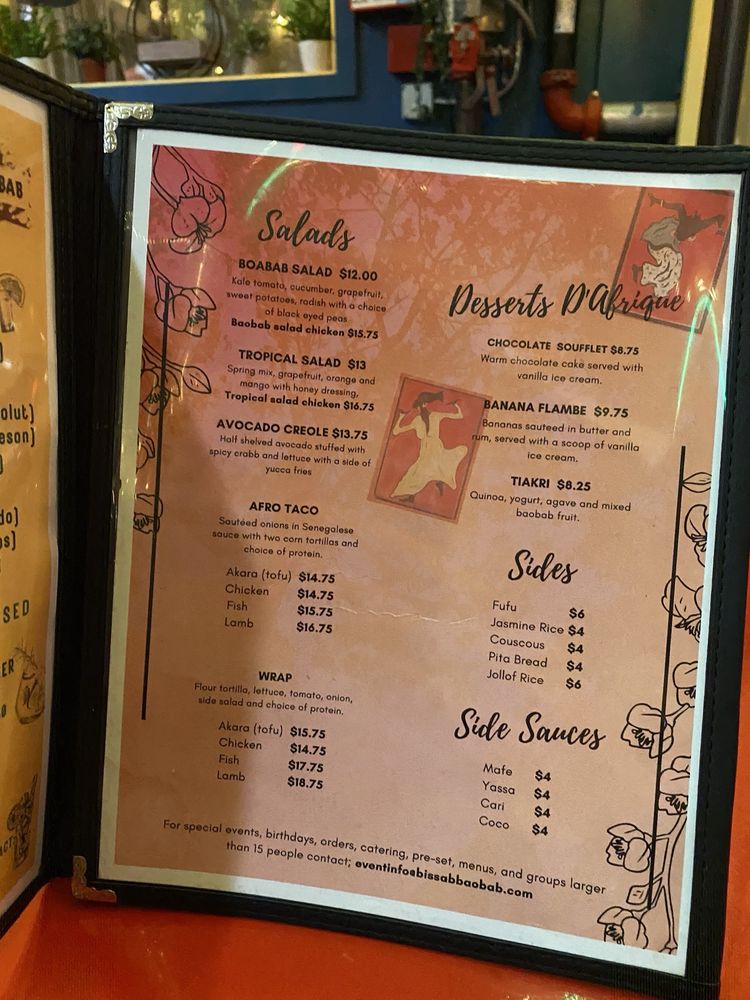 BAB
olut)
eson)
do)
os)
SED
ER
Salads
BOABAB SALAD $12.00
Kale tomato, cucumber, grapefruit,
sweet potatoes, radish with a choice
of black eyed peas
Baobab salad chicken $15.75
TROPICAL SALAD $13
Spring mix, grapefruit, orange and
mango with honey dressing,
Tropical salad chicken $16.75
AVOCADO CREOLE $13.75
Half shelved avocado stuffed with
spicy crabb and lettuce with a side of
yucca fries
AFRO TACO
Sautéed onions in Senegalese
sauce with two corn tortillas and
choice of protein.
Akara (tofu) $14.75
Chicken $14.75
Fish $15.75
Lamb $16.75
WRAP
Flour tortilla, lettuce, tomato, onion,
side salad and choice of protein.
Akara (tofu) $15.75
Chicken $14.75
Fish $17.75
Lamb $18.75
Desserts D'Afrique
CHOCOLATE SOUFFLET $8.75
Warm chocolate cake served with
vanilla ice cream.
BANANA FLAMBE $9.75
Bananas sauteed in butter and
rum, served with a scoop of vanilla
ice cream.
TIAKRI $8.25
Quinoa, yogurt, agave and mixed
baobab fruit.
Sides
Fufu $6
Jasmine Rice $4
Couscous $4
Pita Bread $4
Jollof Rice $6
Side Sauces
Mafe $4
Yassa $4
Cari $4
Coco $4
For special events, birthdays, orders, catering, pre-set, menus, and groups larger
than 15 people contact; eventinfo@bissabbaobab.com